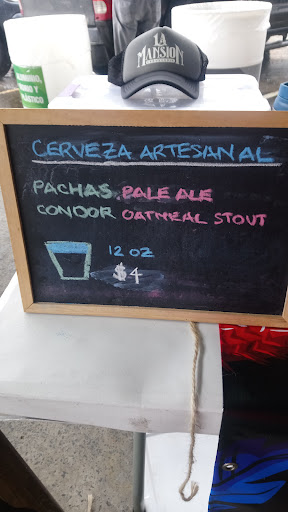 LA
MANSION
CERVEZA ARTESANAL
PACHAS PALE ALE
CONDOR OATMEAL STOUT
12 OZ
$4